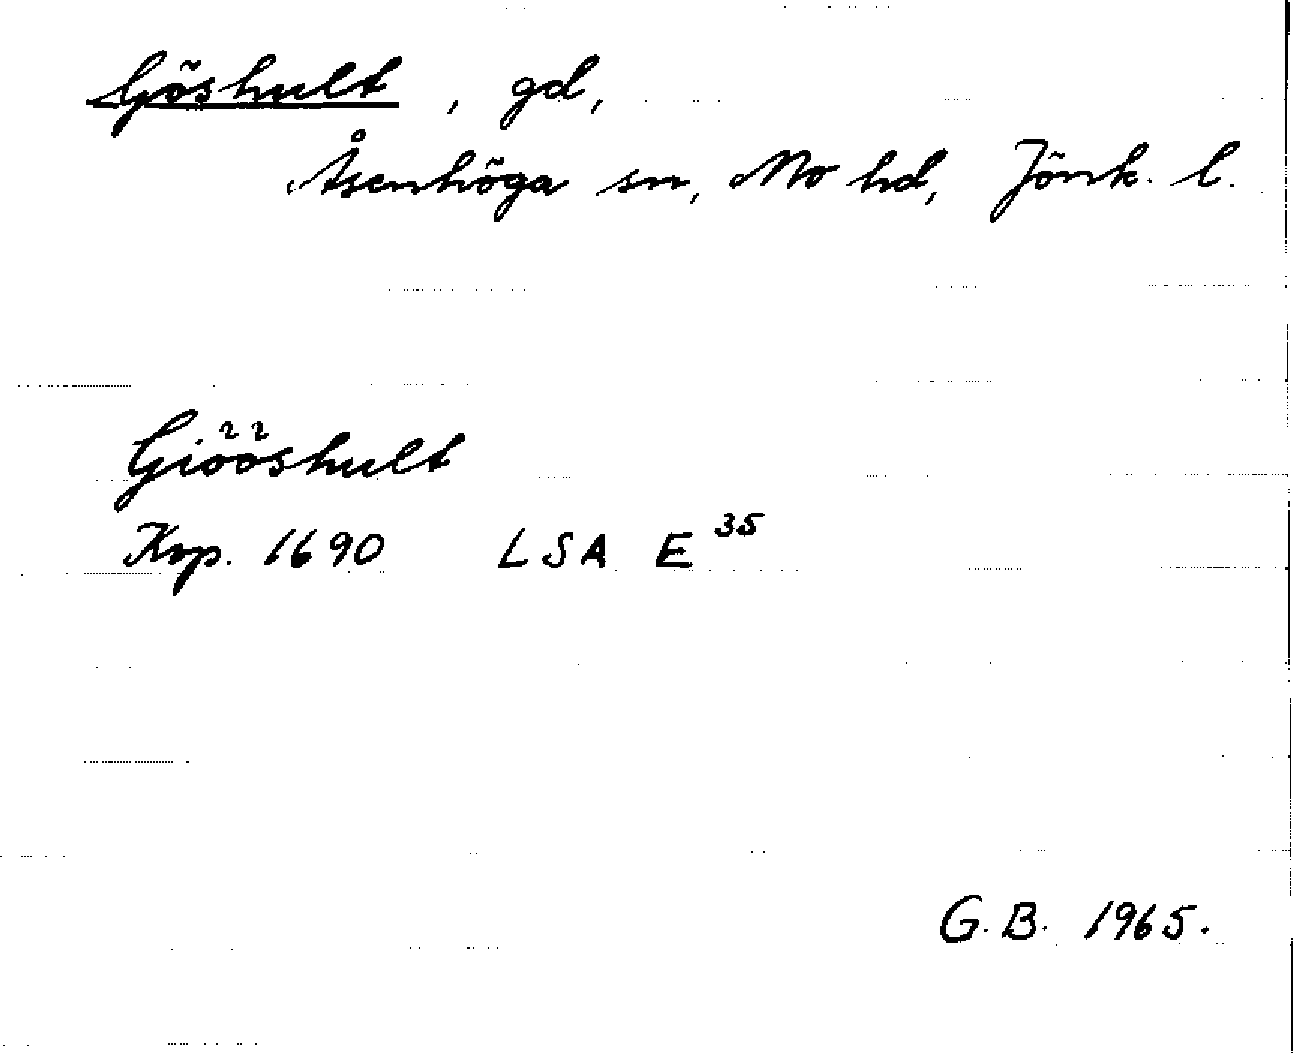 Göshult, gd,
Åsenhöga sn, Mo hd, Jönk. l.
Giööshult
Krp. 1690 LSA E 35
G.B. 1965.